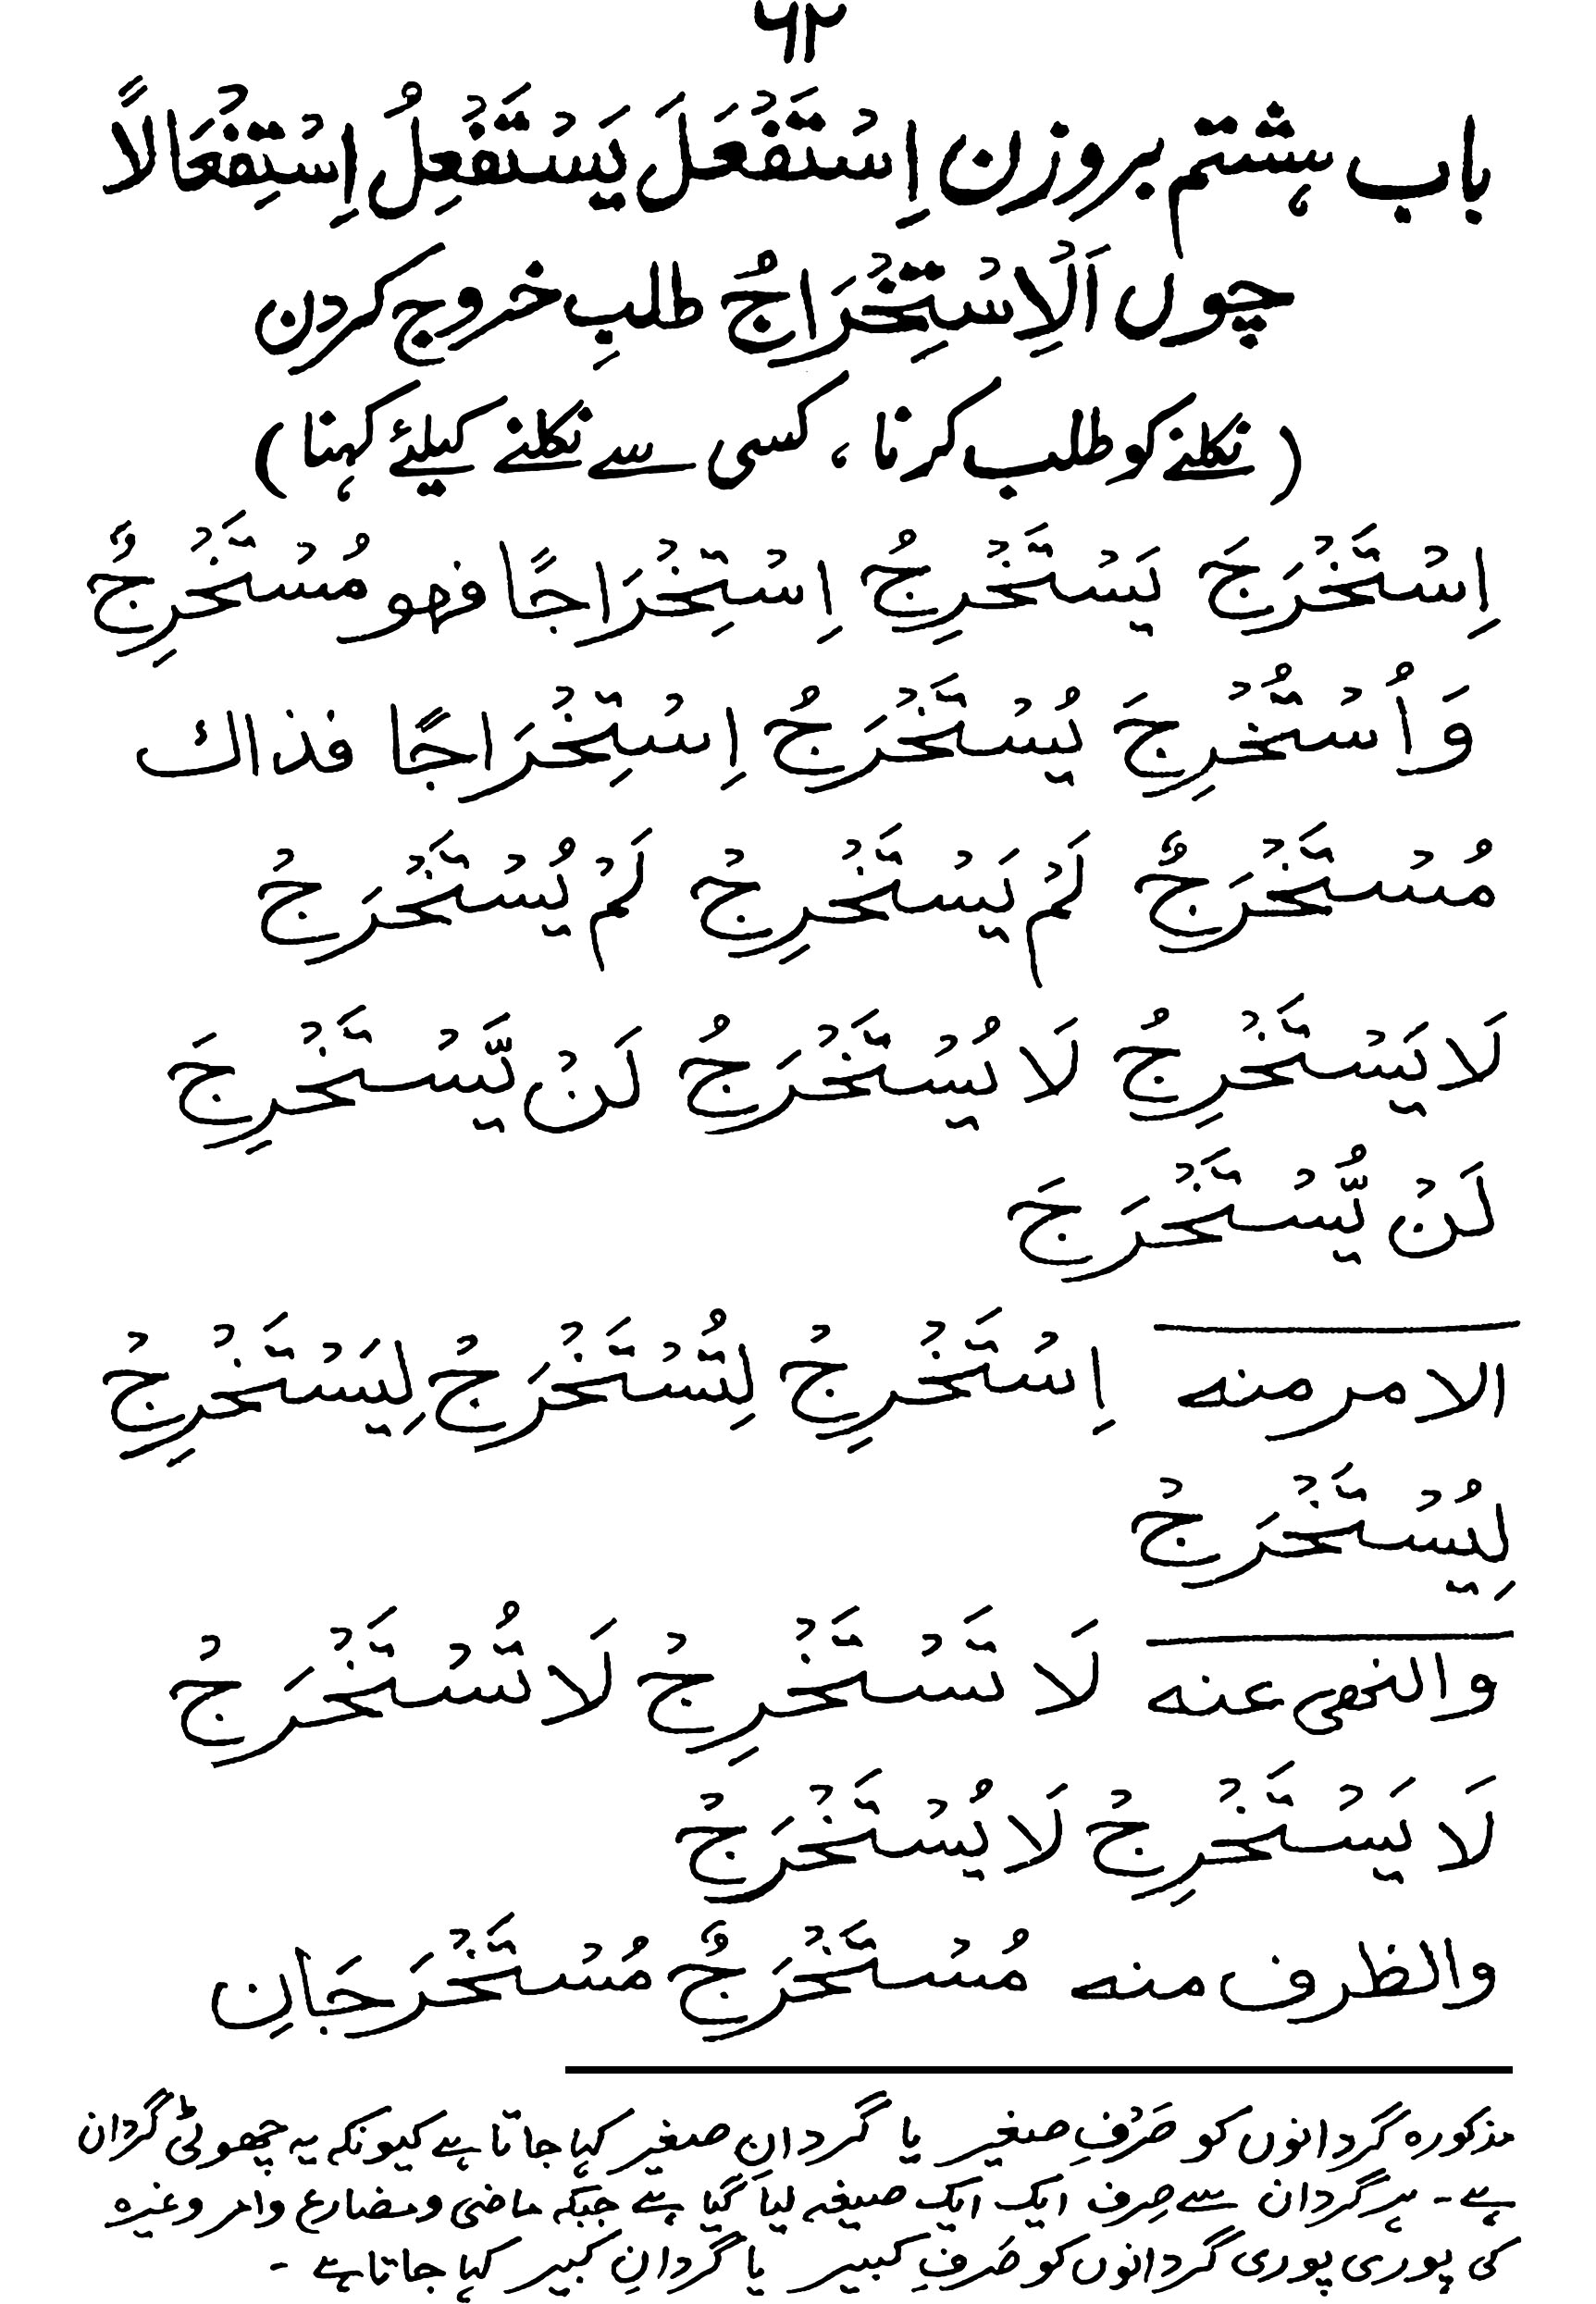 ۶۲
باب ہشتم بروزن اِسْتَفْعَلَ يَسْتَفْعِلُ اِسْتِفْعَالًا
چوں اَلْاِسْتِخْرَاجُ طلبِ خروج کردن
(نکلنے کو طلب کرنا، کسی سے نکلنے کیلئے کہنا)
اِسْتَخْرَجَ يَسْتَخْرِجُ اِسْتِخْرَاجًا فهو مُسْتَخْرِجٌ
وَ اُسْتُخْرِجَ يُسْتَخْرَجُ اِسْتِخْرَاجًا فذاك
مُسْتَخْرَجٌ لَمْ يَسْتَخْرِجْ لَمْ يُسْتَخْرَجْ
لَا يَسْتَخْرِجُ لَا يُسْتَخْرَجُ لَنْ يَّسْتَخْرِجَ
لَنْ يُّسْتَخْرَجَ
الامر منه اِسْتَخْرِجْ لِتُسْتَخْرَجْ لِيَسْتَخْرِجْ
لِيُسْتَخْرَجْ
والنهى عنه لَا تَسْتَخْرِجْ لَا تُسْتَخْرَجْ
لَا يَسْتَخْرِجْ لَا يُسْتَخْرَجْ
والظرف منه مُسْتَخْرَجٌ مُسْتَخْرَجَانِ
مذکورہ گردانوں کو صَرْفِ صغیر یا گردانِ صغیر کہا جاتا ہے کیونکہ یہ چھوٹی گردان
ہے۔ ہر گردان سے صِرف ایک ایک صیغہ لیا گیا ہے جبکہ ماضی ومضارع وامر وغیرہ
کی پوری پوری گردانوں کو صَرفِ کبیر یا گردانِ کبیر کہا جاتا ہے۔